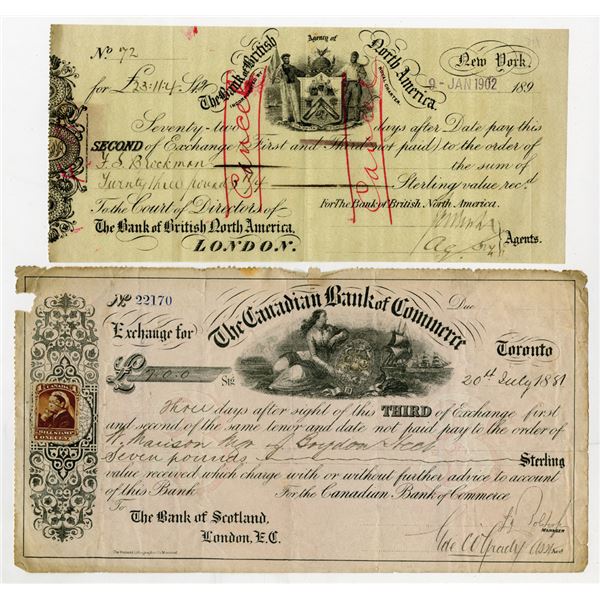 No 72
Agency of
The Bank of British North America
ROYAL CHARTER.
New York.
for £23:11:4 Stg
9 - JAN 1902
189
Cancelled
Cancelled
Seventy-two days after Date pay this
SECOND of Exchange (First and Third not paid) to the order of
F. S. Brockman the sum of
Twenty three pounds 11/4 Sterling value rec.d
To the Court of Directors of For The Bank of British North America.
The Bank of British North America,
LONDON.
Agents.
No 22170
The Canadian Bank of Commerce
Due
Exchange for
Toronto
£ 7.0.0 Stg
20th July 1881
CANADA
BILL STAMP
ONE CENT
Three days after sight of this THIRD of Exchange first
and second of the same tenor and date not paid pay to the order of
Seven pounds Sterling
value received which charge with or without further advice to account
of this Bank. For the Canadian Bank of Commerce
To
The Bank of Scotland,
London, E.C.
MANAGER